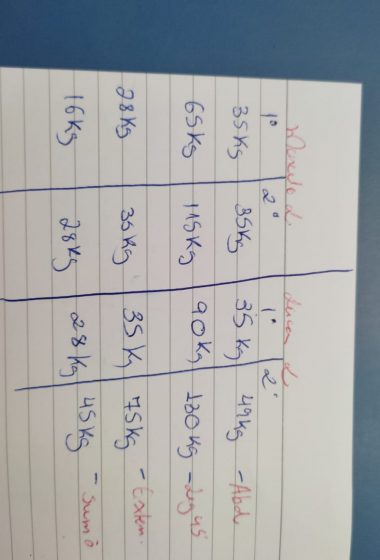 Lucas L
1° 2° 1° 2°
35Kg 85Kg 35Kg 49Kg - Abd
65Kg 115Kg 90Kg 130Kg - Leg 45
28Kg 35Kg 35Kg 75Kg - Exten.
16Kg 28Kg 28Kg 45Kg - Sumô